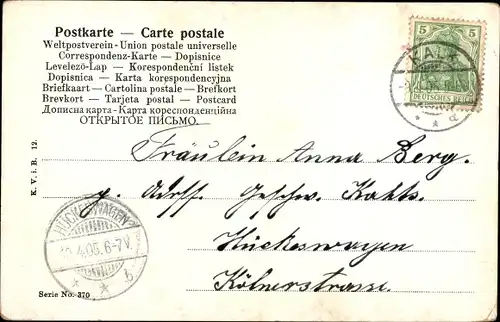 Postkarte — Carte postale
Weltpostverein - Union postale universelle
Correspondenz-Karte — Dopisnice
Levelező-Lap — Korespondenční listek
Dopisnica — Karta korespondencyjna
Briefkaart — Cartolina postale — Brefkort
Brevkort — Tarjeta postal — Postcard
Дописна карта - Карта кореспонденційна
ОТКРЫТОЕ ПИСЬМО.
5 5
DEUTSCHES REICH
KALK
d
K. V. i. B. 12.
Fräulein Anna Berg.
p. Adrss. Geschw.
Hückeswagen
Kölnerstrasse.
HÜCKESWAGEN
4.05.6-7V.
b
Serie No. 370